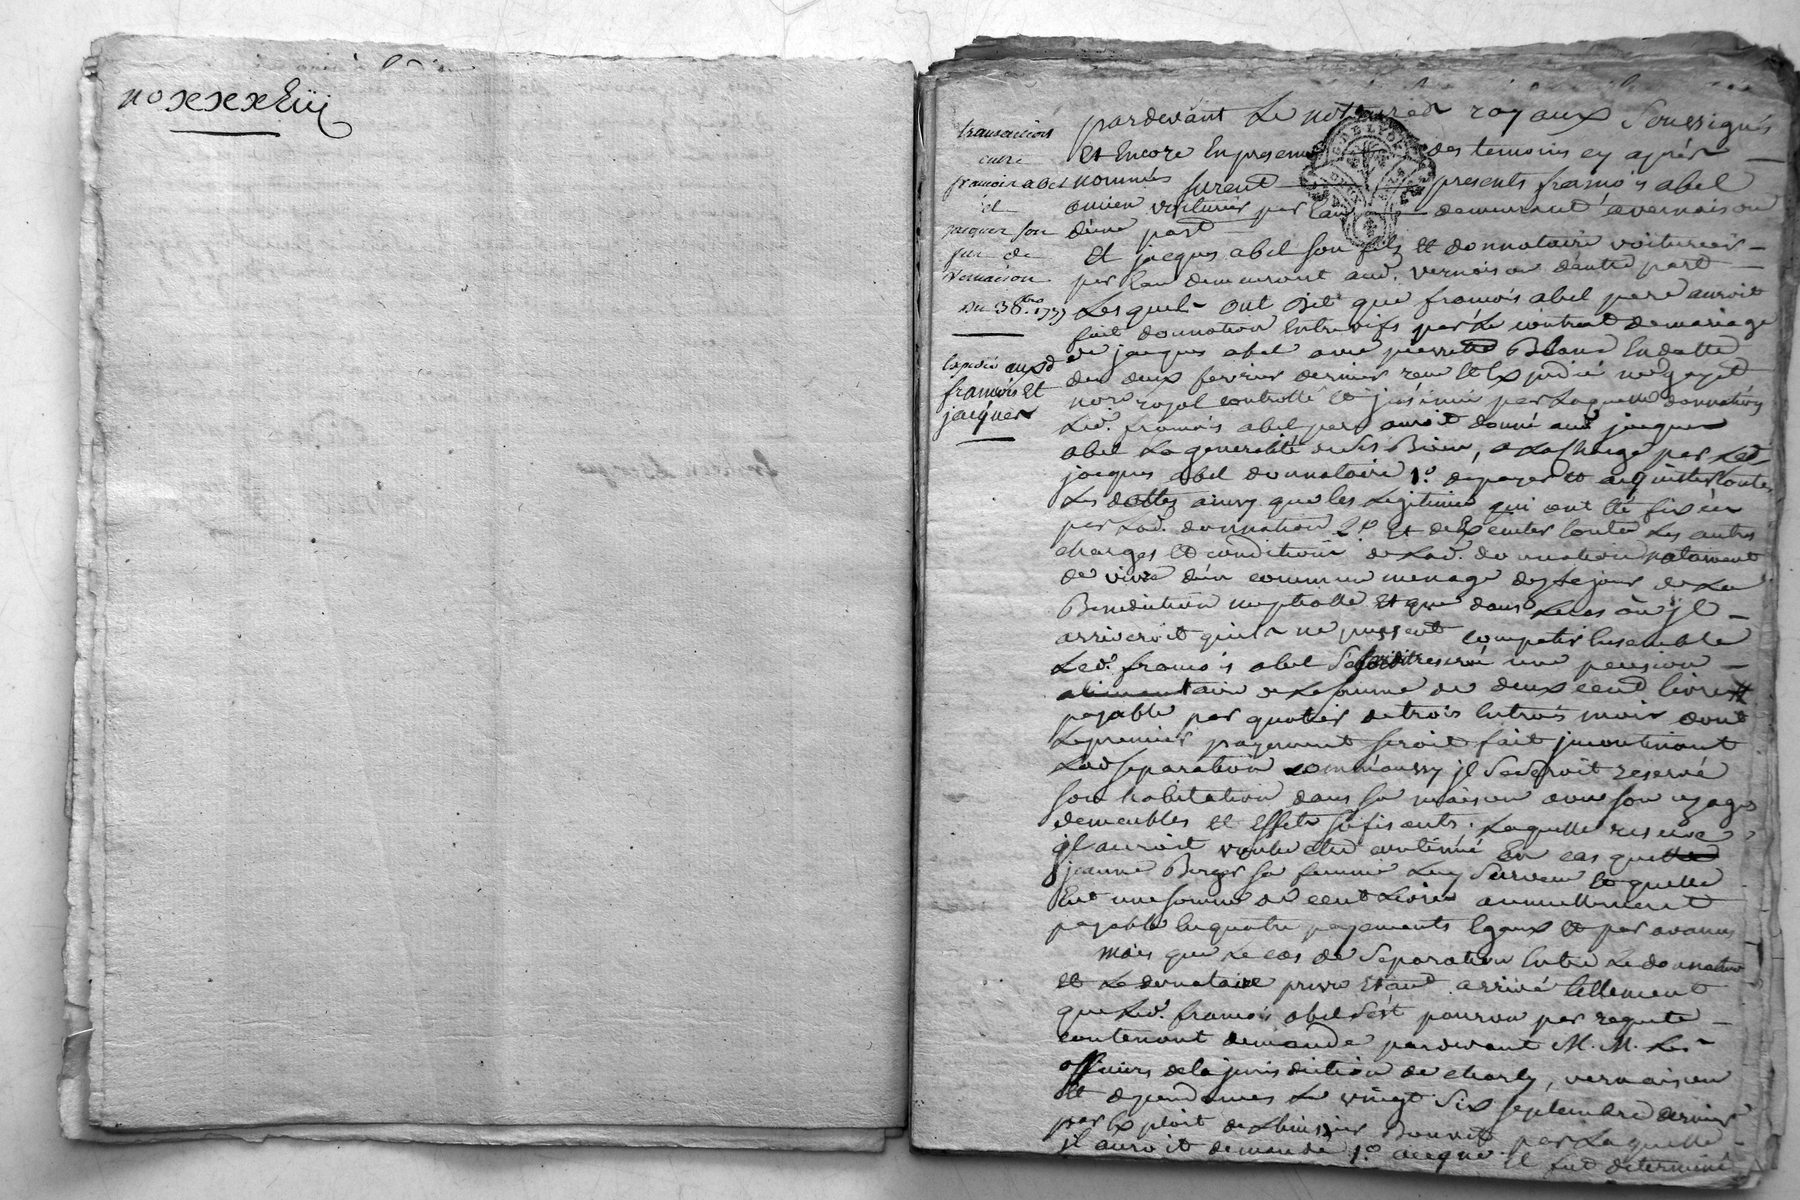 no xxxxiiij
transaction
entre
francois abel
et
jacques son
fils de
Vernaison
Du 3 8bre. 17
expedié auxd
francois Et
jacques
pardevant Le notaire royaux Soussignés
Et Encore En presence des temoins cy aprés
nommés furent presents francois abel
ancien voiturier par Eau demeurant a vernaison
d'une part
Et jacques abel son fils et donnataire voiturier
par Eau demeurant aud. vernaison d'autre part
Lesquels ont Dit que francois abel pere auroit
fait donnation Entrevifs par Le contrat de mariage
de jacques abel avec pierrette Blanc En datte
du deux fevrier dernier recu Et Expedié me gayet
nore royal controllé et jnsinué par Laquelle donnation
Led. francois abel pere auroit donné aud jacques
abel La generalité de ses Biens, a La charge par Led.
jacques abel donnataire 1º. de payer et acquitter toutes
Les dettes ainsy que les Legitimes qui ont été fixées
par Lad. donnation 2º. Et d'Executer toutes Les autres
charges et conditions de Lad. donnation notament
de vivre d'un commun menage des le jour de La
Benediction nuptialle Et que dans Le cas où jl
arriveroit qu'ils ne pussent compatir Ensemble
Led. francois abel s'est reservé une pension
alimentaire de La somme de deux cent livres
payable par quartier de trois En trois mois dont
Le premier payement seroit fait jncontinant
Lad separation comme aussy jl Se seroit reservé
son habitation dans sa maison avec son usage
de meubles et Effets sufisants. Laquelle reserve
jl auroit voulu etre continué En cas que
jeanne Berger sa femme Luy Survecu Et quelle
Eut une somme de cent Livres annuellement
payable En quatre payements Egaux et par avance
mais que Le cas de Separation Entre Le donnateur
et Le donnataire Etant arrivé tellement
que Led. francois abel s'est pourvu par requete
contenant demande pardevant M. M. Les
officiers de la jurisdiction de charly, vernaison
et dependances Le vingt Six septembre dernier
par Exploit de L'huissier par Laquelle
jl auroit demandé 1º. aceque il fut determiné